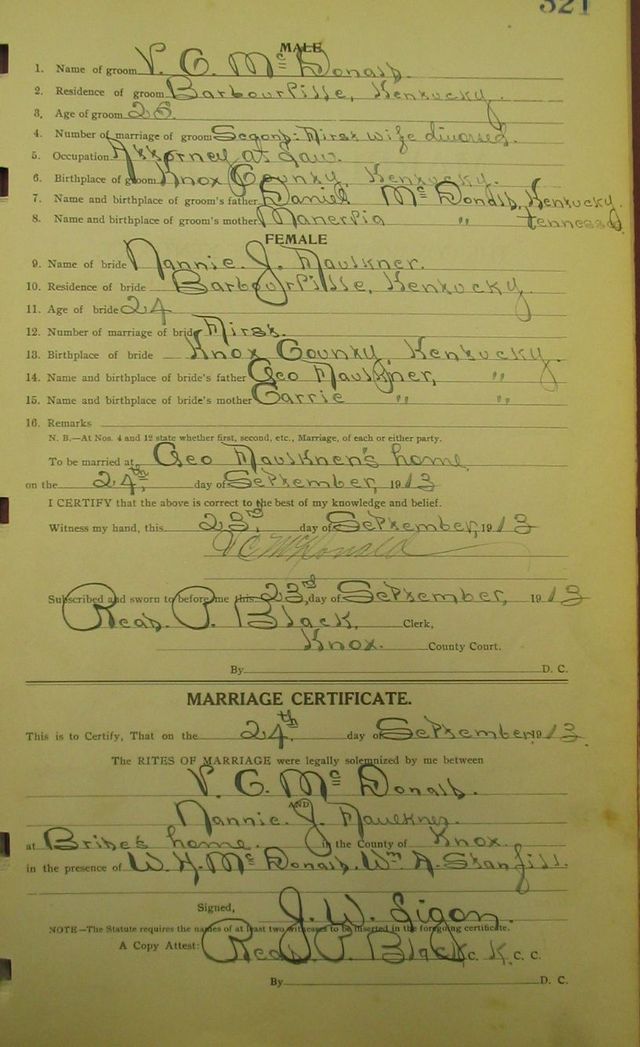 321
MALE
1. Name of groom V. C. McDonald.
2. Residence of groom Barbourville, Kentucky.
3. Age of groom 26.
4. Number of marriage of groom Second: First wife divorced.
5. Occupation Attorney at Law.
6. Birthplace of groom Knox County, Kentucky.
7. Name and birthplace of groom's father Daniel McDonald, Kentucky.
8. Name and birthplace of groom's mother Manervia " Tennessee
FEMALE
9. Name of bride Nannie. J. Faulkner.
10. Residence of bride Barbourville, Kentucky.
11. Age of bride 24
12. Number of marriage of bride First.
13. Birthplace of bride Knox County, Kentucky.
14. Name and birthplace of bride's father Geo Faulkner, "
15. Name and birthplace of bride's mother Carrie " "
16. Remarks
N. B.—At Nos. 4 and 12 state whether first, second, etc., Marriage, of each or either party.
To be married at Geo Faulkner's home
on the 24th, day of September, 1913
I CERTIFY that the above is correct to the best of my knowledge and belief.
Witness my hand, this 23rd, day of September, 1913
V C McDonald
Subscribed and sworn to before me this 23rd, day of September, 1913
Read. P. Black, Clerk,
Knox. County Court.
By D. C.
MARRIAGE CERTIFICATE.
This is to Certify, That on the 24th day of September, 1913.
The RITES OF MARRIAGE were legally solemnized by me between
V. C. McDonald.
AND
Nannie. J. Faulkner.
at Bride's home. in the County of Knox.
in the presence of W. H. McDonald. Wm A. Stanfill.
Signed, J. W. Ligon.
NOTE—The Statute requires the names of at least two witnesses to be inserted in the foregoing certificate.
A Copy Attest: Read. P. Black C. K. C. C.
By D. C.